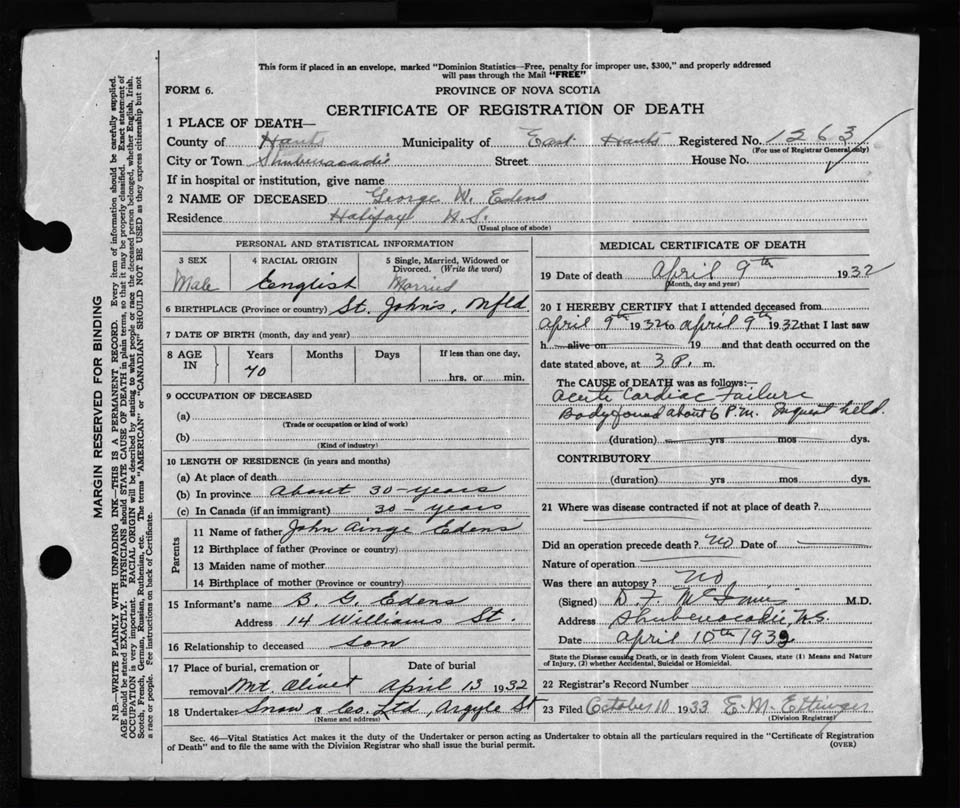 This form if placed in an envelope, marked "Dominion Statistics—Free, penalty for improper use, $300," and properly addressed
will pass through the Mail "FREE"
FORM 6. PROVINCE OF NOVA SCOTIA
CERTIFICATE OF REGISTRATION OF DEATH
1 PLACE OF DEATH—
County of Hants Municipality of East Hants Registered No. 1263
(For use of Registrar General only)
City or Town Shubenacadie Street House No.
If in hospital or institution, give name
2 NAME OF DECEASED George W. Edens
Residence Halifax N.S.
(Usual place of abode)
PERSONAL AND STATISTICAL INFORMATION
3 SEX 4 RACIAL ORIGIN 5 Single, Married, Widowed or
Divorced. (Write the word)
Male English Married
6 BIRTHPLACE (Province or country) St. John's, Nfld
7 DATE OF BIRTH (month, day and year)
8 AGE IN Years Months Days If less than one day,
70 hrs. or min.
9 OCCUPATION OF DECEASED
(a)
(Trade or occupation or kind of work)
(b)
(Kind of industry)
10 LENGTH OF RESIDENCE (in years and months)
(a) At place of death
(b) In province About 30-years
(c) In Canada (if an immigrant) 30-years
Parents
11 Name of father John Ainge Edens
12 Birthplace of father (Province or country)
13 Maiden name of mother
14 Birthplace of mother (Province or country)
15 Informant's name B. G. Edens
Address 14 Williams St.
16 Relationship to deceased son
17 Place of burial, cremation or Date of burial
removal Mt. Olivet April 13 1932
18 Undertaker Snow & Co. Ltd, Argyle St
(Name and address)
MEDICAL CERTIFICATE OF DEATH
19 Date of death April 9th 1932
(Month, day and year)
20 I HEREBY CERTIFY that I attended deceased from
April 9th 1932 to April 9th 1932 that I last saw
h alive on 19 and that death occurred on the
date stated above, at 3 P. m.
The CAUSE of DEATH was as follows:—
Acute Cardiac Failure
Body found about 6 P.M. Inquest held.
(duration) yrs mos dys.
CONTRIBUTORY
(duration) yrs mos dys.
21 Where was disease contracted if not at place of death?
Did an operation precede death? No Date of
Nature of operation
Was there an autopsy? No
(Signed) D. F. McInnis M.D.
Address Shubenacadie, N.S.
Date April 10th 1932
State the Disease causing Death, or in death from Violent Causes, state (1) Means and Nature
of Injury, (2) whether Accidental, Suicidal or Homicidal.
22 Registrar's Record Number
23 Filed October 10 1933 E. M. Ettinger
(Division Registrar)
Sec. 46—Vital Statistics Act makes it the duty of the Undertaker or person acting as Undertaker to obtain all the particulars required in the "Certificate of Registration
of Death" and to file the same with the Division Registrar who shall issue the burial permit. (OVER)
MARGIN RESERVED FOR BINDING
N.B.—WRITE PLAINLY WITH UNFADING INK—THIS IS A PERMANENT RECORD. Every item of information should be carefully supplied.
AGE should be stated EXACTLY. PHYSICIANS should STATE CAUSE OF DEATH in plain terms, so that it may be properly classified. Exact statement of
OCCUPATION is very important. RACIAL ORIGIN will be described by stating to what people or race the deceased person belonged, whether English, Irish,
Scotch, French, German, Russian, Ruthenian, etc. The terms "AMERICAN" or "CANADIAN" SHOULD NOT BE USED as they express citizenship but not
a race or people. See instructions on back of Certificate.